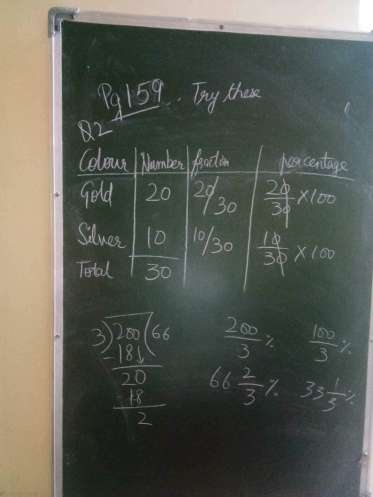 Pg 159.. Try these
Q2
Colour Number fraction percentage
Gold 20 20/30 20/30 × 100
Silver 10 10/30 10/30 × 100
Total 30
3)200(66 200/3 % 100/3 %
-18↓
20 66 2/3 % 33 1/3 %
-18
2